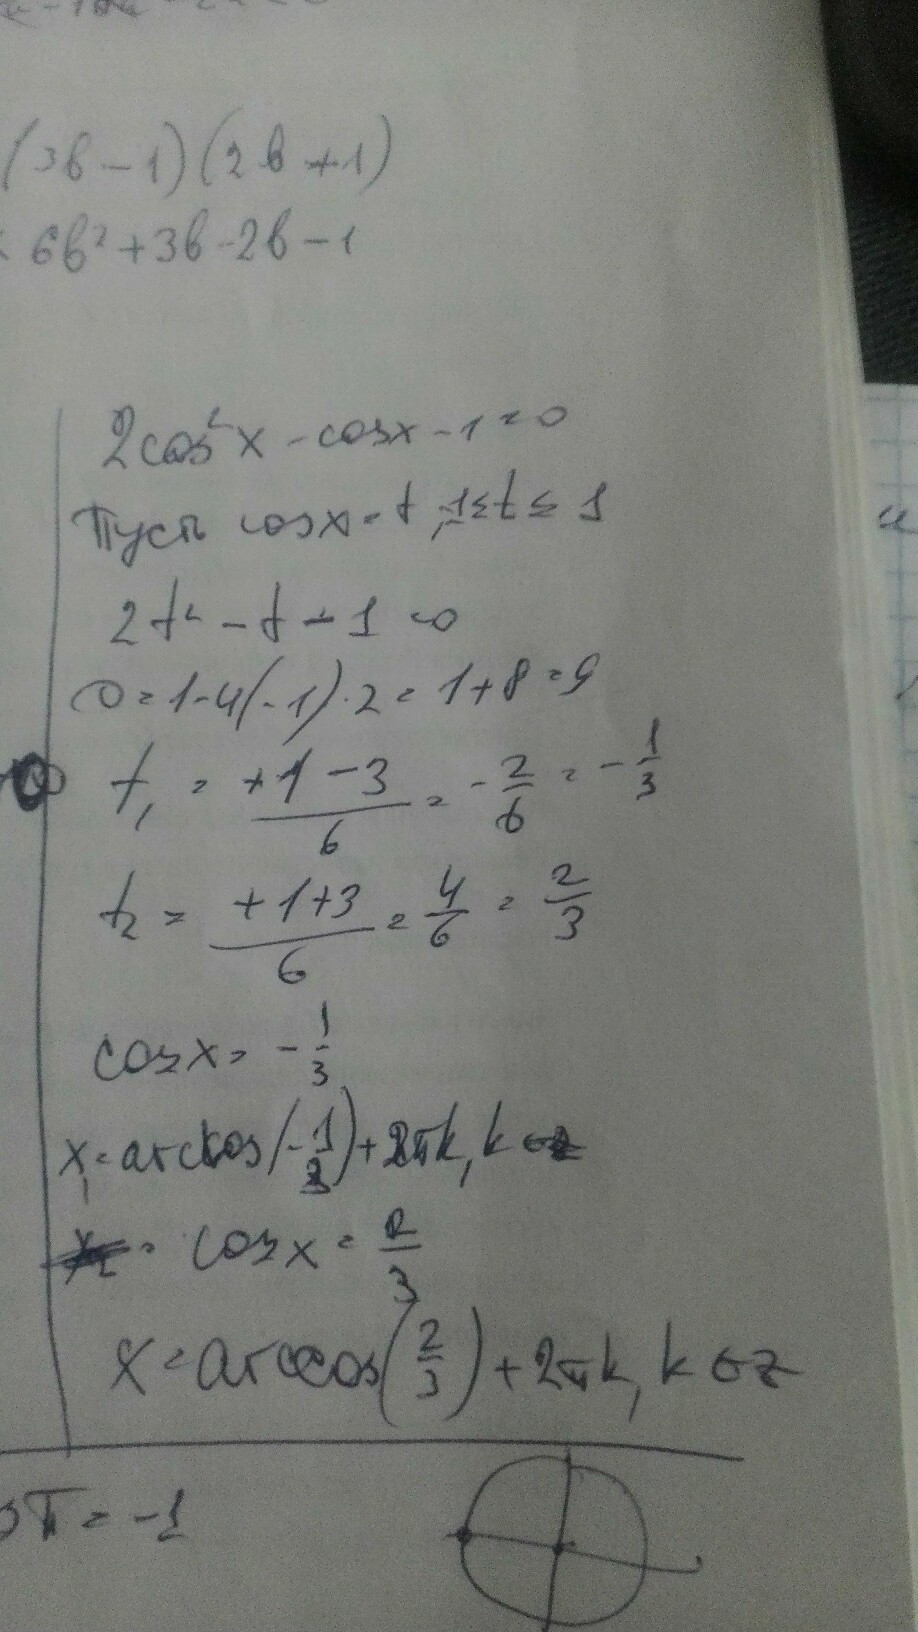 (3b-1)(2b+1)
6b²+3b-2b-1
2cos²x-cosx-1=0
Пусть cosx=t, -1≤t≤1
2t²-t-1=0
D=1-4(-1)·2=1+8=9
t₁ = +1-3/6 = -2/6 = -1/3
t₂ = +1+3/6 = 4/6 = 2/3
cosx = -1/3
x₁=arccos(-1/3)+2πk, k∈z
cosx = 2/3
x=arccos(2/3)+2πk, k∈z
π = -1